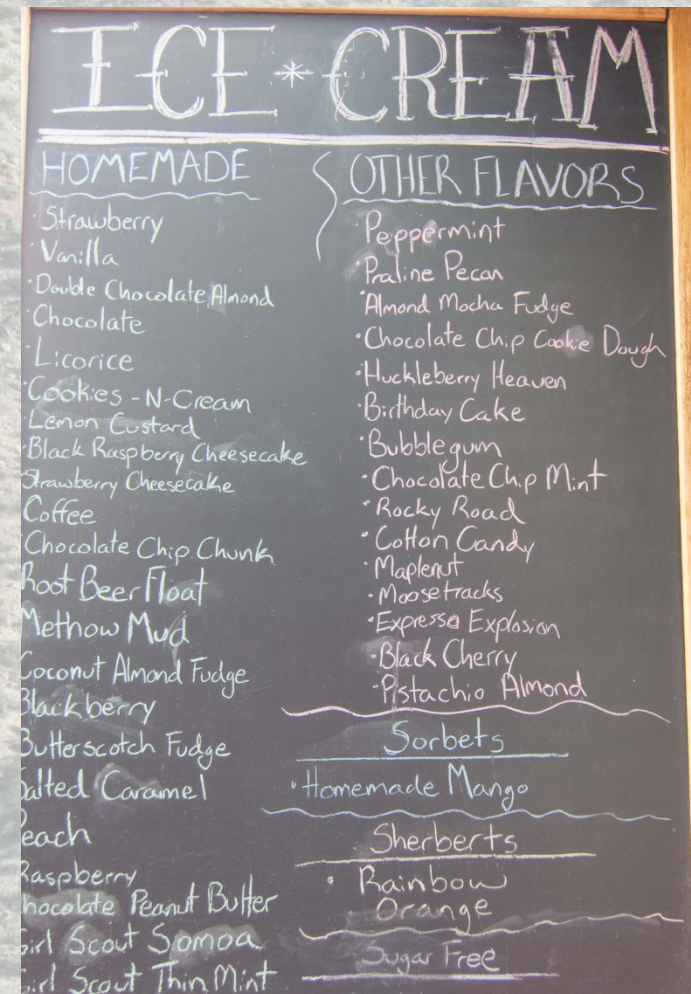 ICE * CREAM
HOMEMADE
· Strawberry
· Vanilla
· Double Chocolate Almond
· Chocolate
· Licorice
· Cookies - N - Cream
Lemon Custard
· Black Raspberry Cheesecake
Strawberry Cheesecake
Coffee
Chocolate Chip Chunk
Root Beer Float
Methow Mud
Coconut Almond Fudge
Blackberry
Butterscotch Fudge
Salted Caramel
Peach
Raspberry
Chocolate Peanut Butter
Girl Scout Somoa
Girl Scout Thin Mint
OTHER FLAVORS
· Peppermint
· Praline Pecan
· Almond Mocha Fudge
· Chocolate Chip Cookie Dough
· Huckleberry Heaven
· Birthday Cake
· Bubblegum
· Chocolate Chip Mint
· Rocky Road
· Cotton Candy
· Maplenut
· Moosetracks
· Expresso Explosion
· Black Cherry
· Pistachio Almond
Sorbets
· Homemade Mango
Sherberts
· Rainbow
Orange
Sugar Free